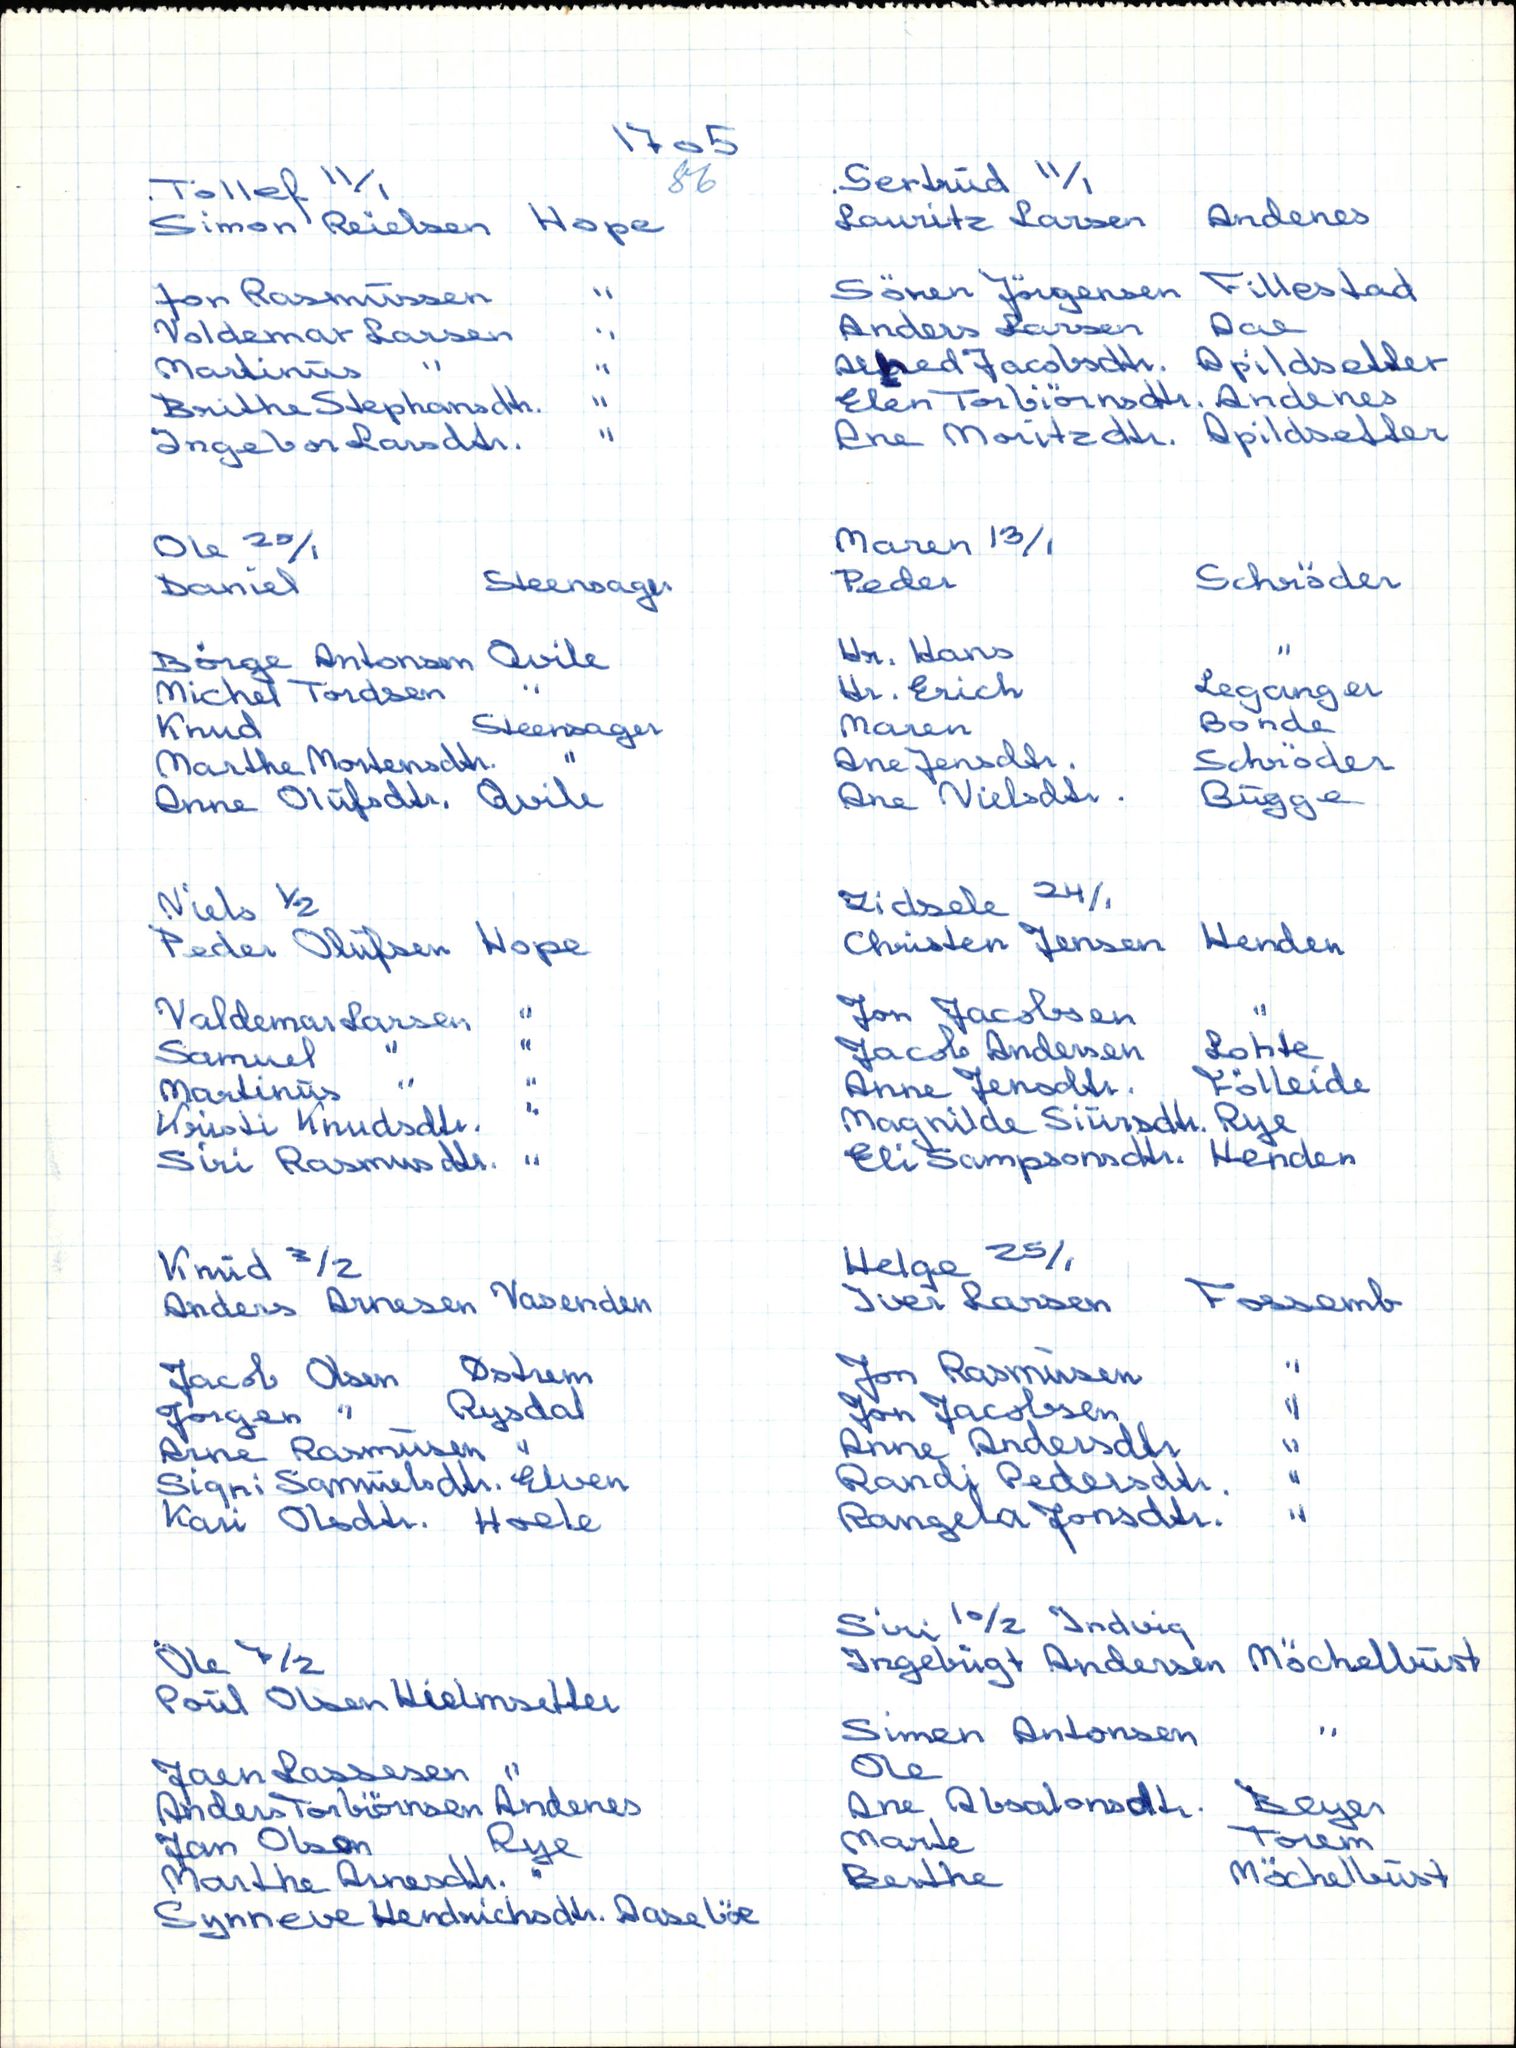 1705
86
Tollef 11/1
Simon Reielsen Hope
Jon Rasmussen "
Voldemar Larsen "
Martinus " "
Brithe Stephansdtr. "
Ingebor Larsdtr. "
Ole 20/1
Daniel Steensager
Börge Antonsen Qvile
Michel Tordsen "
Knud Steensager
Marthe Mortensdtr. "
Anne Olufsdtr. Qvile
Niels 1/2
Peder Olufsen Hope
Valdemar Larsen "
Samuel " "
Martinus " "
Kristi Knudsdtr. "
Siri Rasmusdtr. "
Knud 3/2
Anders Arnesen Vasenden
Jacob Olsen Østrem
Jörgen " Rysdal
Arne Rasmusen "
Signi Samuelsdtr. Elven
Kari Olsdtr. Hoele
Ole 7/2
Poul Olsen Hielmsetter
Jaen Lassesen "
Anders Torbiörnsen Andenes
Jan Olson Rye
Marthe Arnesdtr. "
Synneve Hendrichsdtr. Aaseböe
Gertrud 11/1
Lauritz Larsen Andenes
Sören Jörgensen Fillestad
Anders Larsen Aae
Jacobsdtr. Apildsetter
Elen Torbiörnsdtr. Andenes
Ane Moritzdtr. Apildsetter
Maren 13/1
Peder Schröder
Hr. Hans "
Hr. Erich Leganger
Maren Bonde
Ane Jensdtr. Schröder
Ane Nielsdtr. Bugge
Zidsele 24/1
Christen Jensen Henden
Jon Jacobsen "
Jacob Andersen Lohte
Anne Jensdtr. Fölleide
Magnilde Siursdtr. Rye
Eli Sampsonsdtr. Henden
Helge 25/1
Iver Larsen Fossemb
Jon Rasmusen "
Jon Jacobsen "
Anne Andersdtr "
Randi Pedersdtr. "
Rangela Jonsdtr. "
Siri 10/2 Indvig
Ingebrigt Andersen Möchelbust
Simen Antonsen "
Ole
Ane Absalonsdtr. Beyer
Marte Torem
Berthe Möchelbust